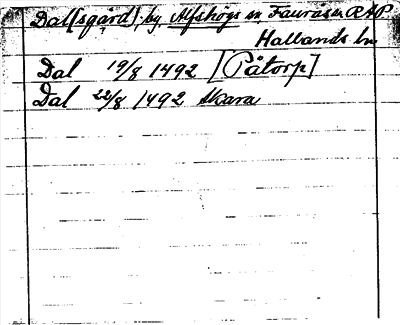 Dal[sgård] by Alfshögs sn Fauråsa RAP.
Hallands ln
Dal 19/8 1492 [Påtorp]
Dal 22/8 1492 Skara